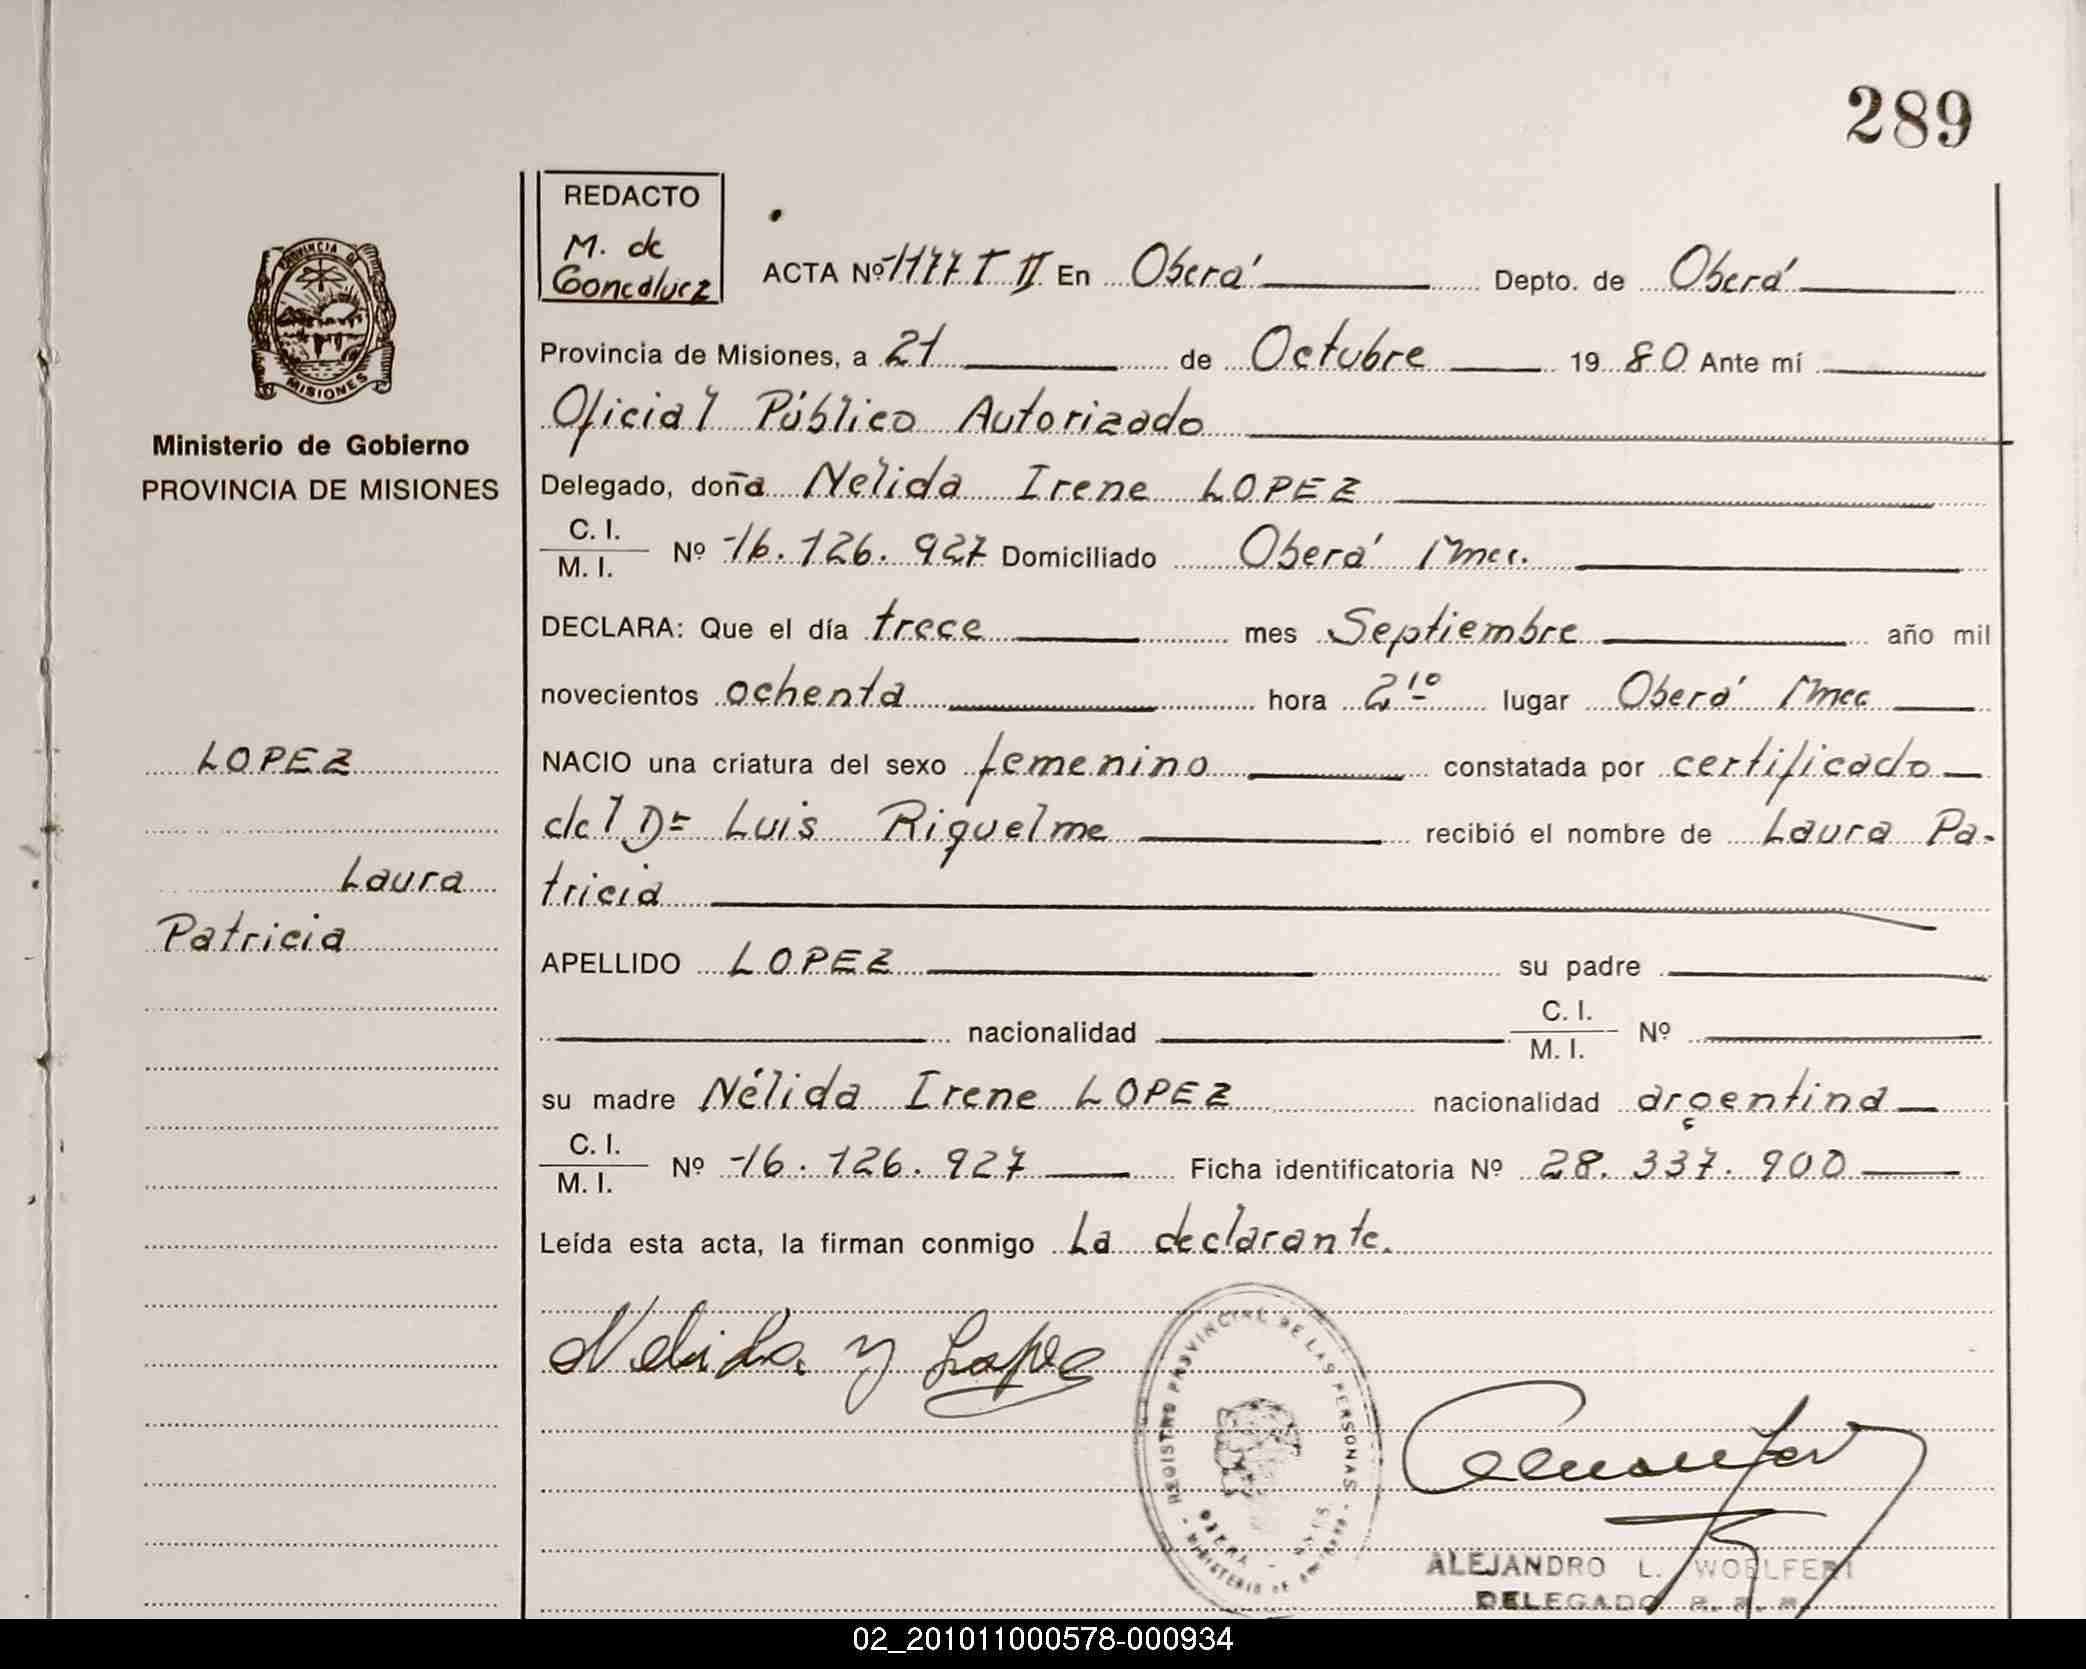 289
REDACTO
M. de
Goncalvez
ACTA Nº 1177 T II En Oberá Depto. de Oberá
PROVINCIA DE
MISIONES
Provincia de Misiones, a 21 de Octubre 1980 Ante mí
Oficial Público Autorizado
Ministerio de Gobierno
PROVINCIA DE MISIONES
Delegado, doña Nelida Irene LOPEZ
C. I.
M. I. Nº 16.126.927 Domiciliado Oberá Mnes.
DECLARA: Que el día trece mes Septiembre año mil
novecientos ochenta hora 2¹⁰ lugar Oberá Mnes
LOPEZ
Laura
Patricia
NACIO una criatura del sexo femenino constatada por certificado
del Dr Luis Riquelme recibió el nombre de Laura Pa-
tricia
APELLIDO LOPEZ su padre
nacionalidad C. I.
M. I. Nº
su madre Nélida Irene LOPEZ nacionalidad argentina
C. I.
M. I. Nº 16.126.927 Ficha identificatoria Nº 28.337.900
Leída esta acta, la firman conmigo La declarante.
Nelida Y Lopez
REGISTRO PROVINCIAL DE LAS PERSONAS
OBERA
MINISTERIO DE GOBIERNO
ALEJANDRO L. WOELFERT
DELEGADO
02_201011000578-000934